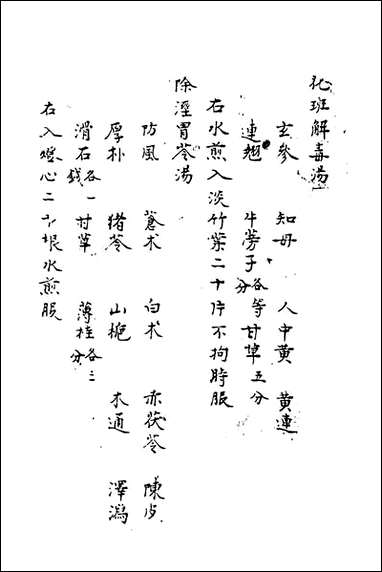 化斑解毒湯
玄參 知母 人中黃 黃連
連翹 牛蒡子各等分 甘草五分
右水煎入淡竹葉二十片不拘時服
除溼胃苓湯
防風 蒼朮 白朮 赤茯苓 陳皮
厚朴 猪苓 山梔 木通 澤瀉
滑石各一錢 甘草 薄桂各三分
右入燈心二十根水煎服